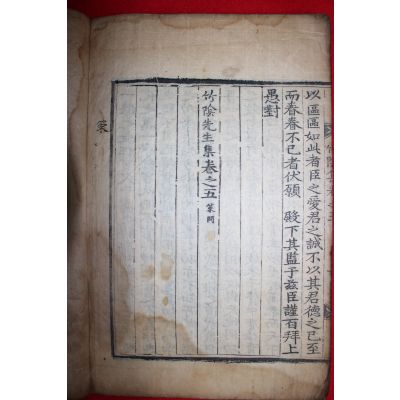 以區區如此者臣之愛君之誠不以其君德之已至
而眷眷不已者伏願 殿下其監于玆臣謹百拜上
愚對
竹陰先生集卷之五 策問
策